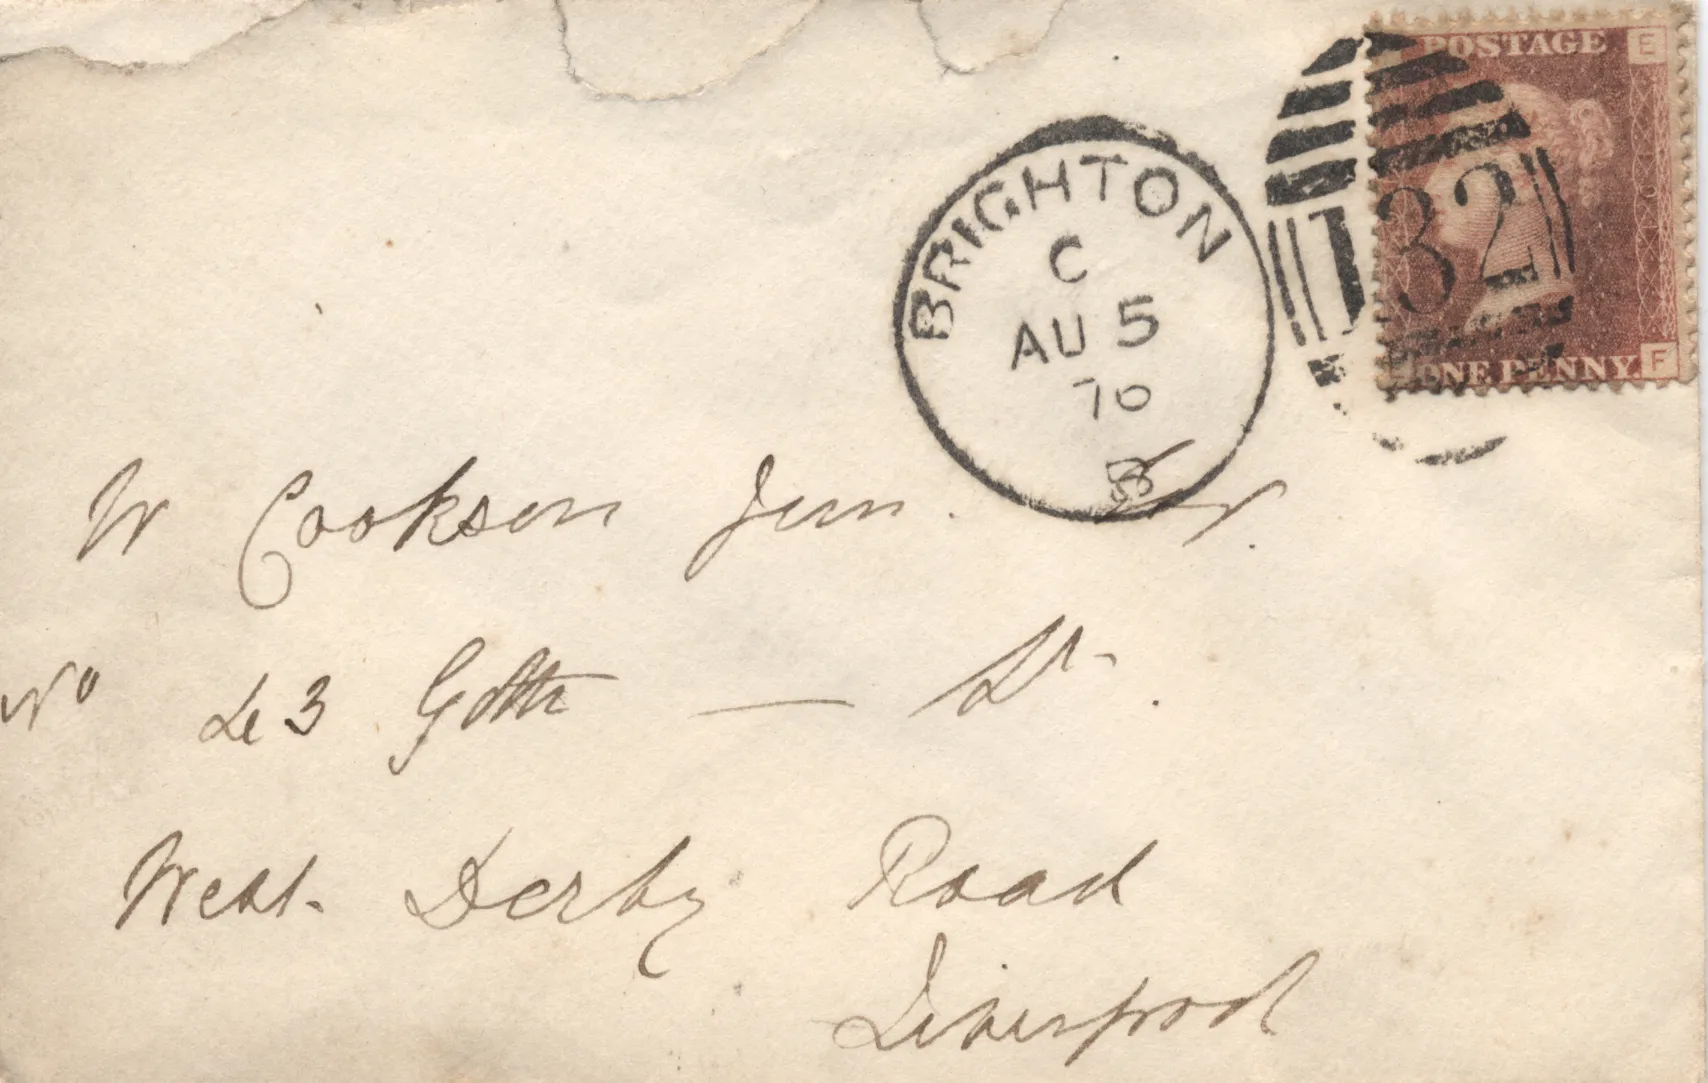 POSTAGE E
132
ONE PENNY. F
BRIGHTON
C
AU 5
70
W Cookson Jun.
No 43 Goth — St.
West Derby Road
Liverpool